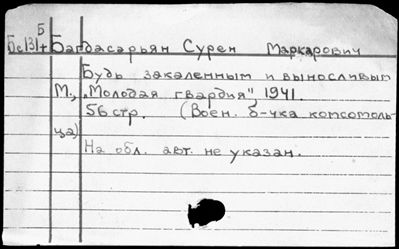 Б
Бс131+ Багдасарьян Сурен Маркарович
Будь закаленным и выносливым
М., „Молодая гвардия" 1941.
56 стр. (Воен. б-чка комсомоль-
ца)
На обл. авт. не указан.